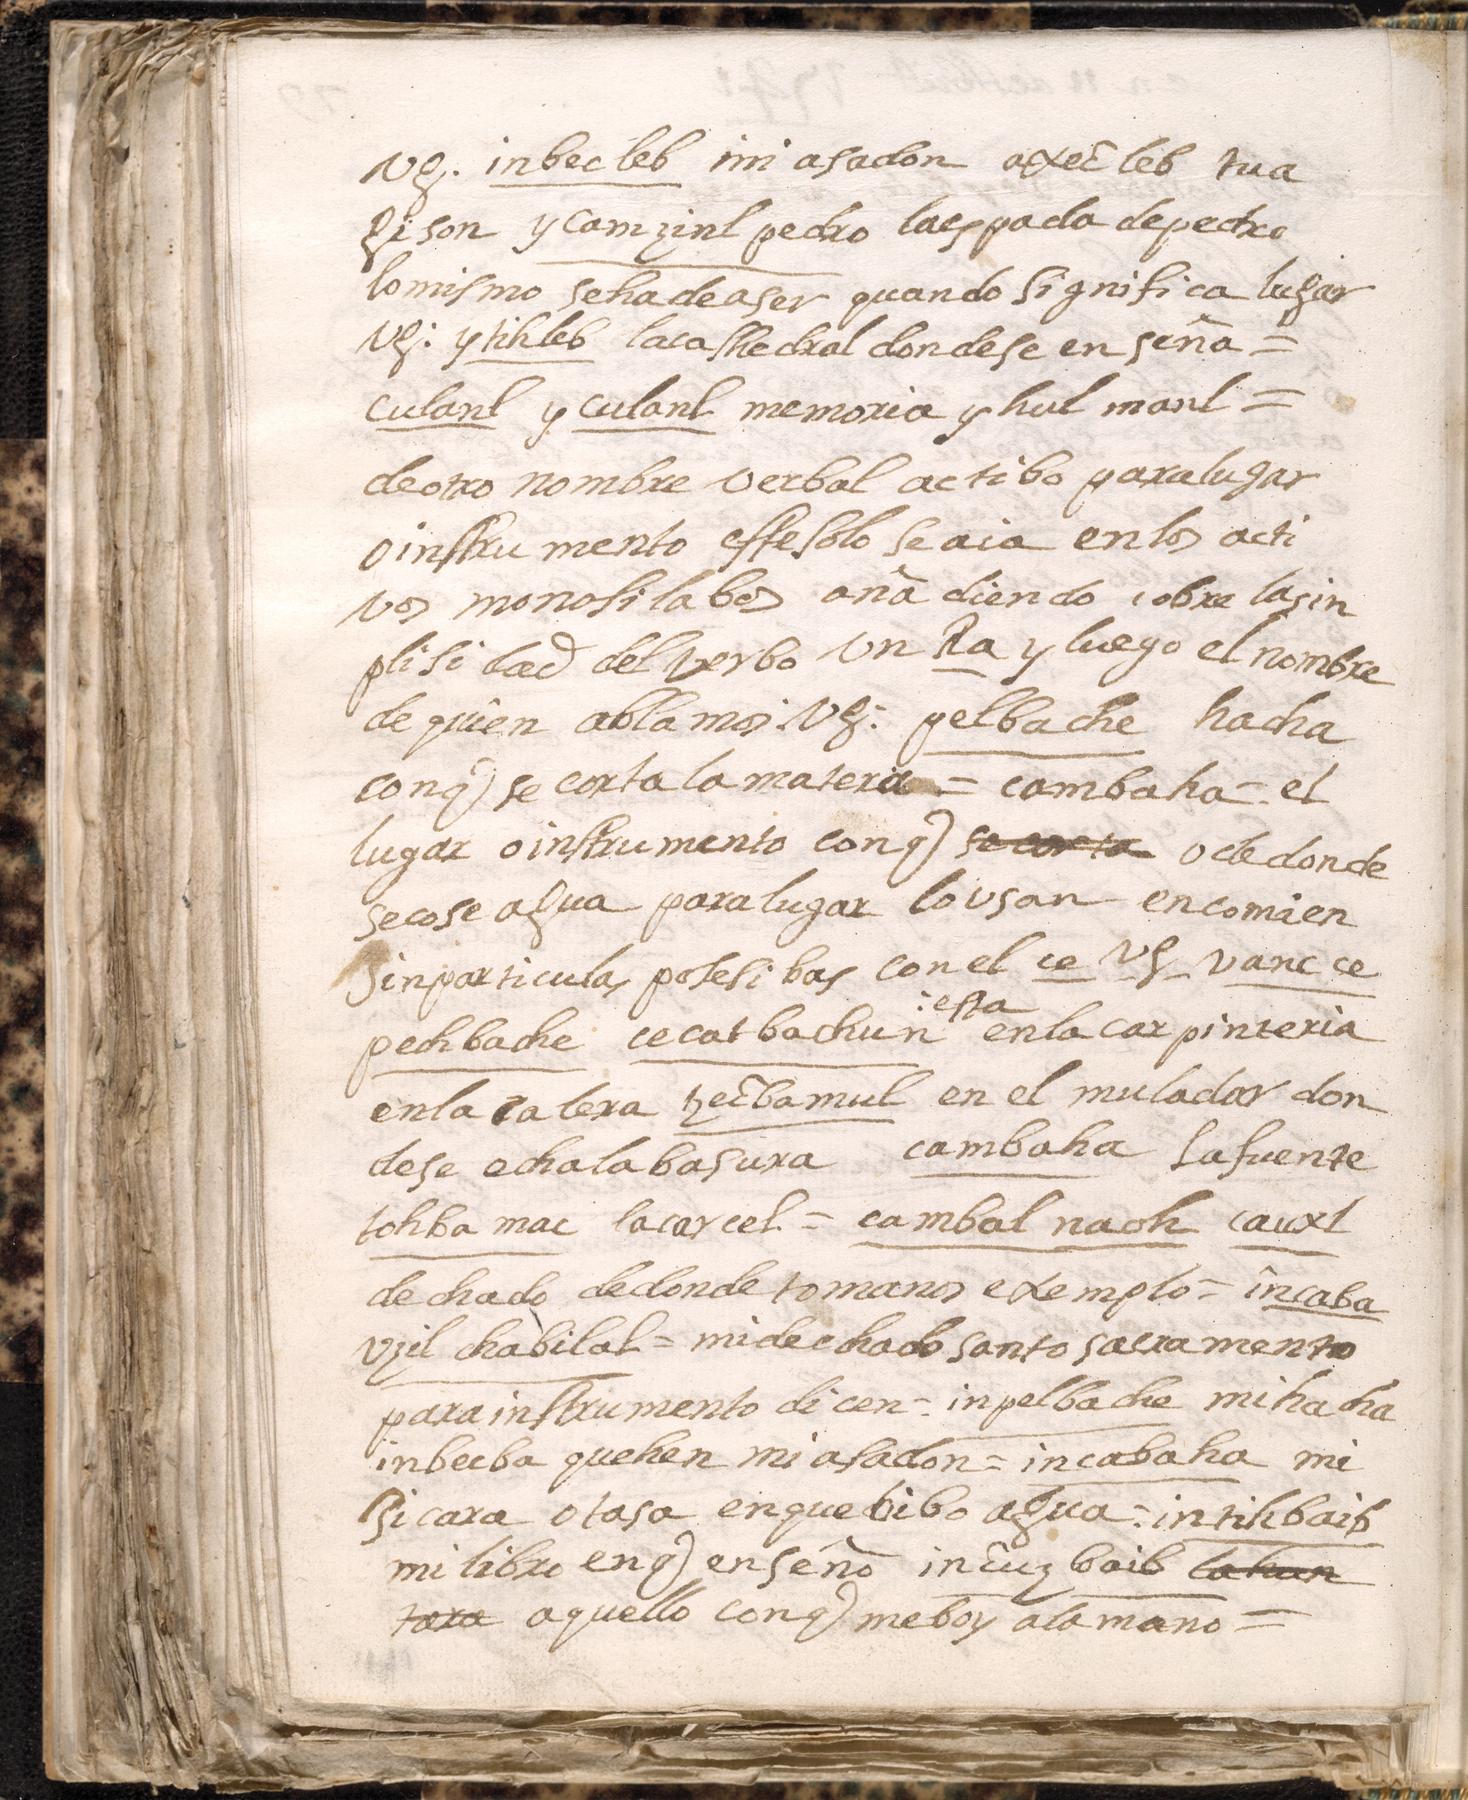 Vg. inbecleb mi asadon axecleb tua
gison y camzinl pedro la espada de pedro
lo mismo se ha de aser quando significa lugar
Vg: ytihleb la cathedral donde se enseña =
culanl y culanl memoria y hul manl =
de otro nombre verbal actibo para lugar
o instrumento este solo se aia en los acti
vos monosilabos añadiendo sobre la sin
plisidad del verbo Un Ra y luego el nombre
de quien ablamos: Vg: pelbache hacha
con q) se corta la materia = cambaha = el
lugar o instrumento con q) se corta o de donde
se cose agua para lugar lo usan en comien
sin particulas posesibas con el ce Vg vanc ce
pechbache cecatbachun : esta en la carpinteria
en la calera tzecbamul en el muladar don
de se echa la basura cambaha la fuente
tohba mac la carcel = cambal naoh cauxl
dechado de donde tomanos exemplo = incaba
Vzil chabilal = mi dechado santo sacramento
para instrumento dicen = inpelbache mi hacha
inbecba quehen mi asadon = incabaha mi
sicara o tasa en que bibo agua = intihbaib
mi libro en q) enseño incuzbaib la han
tara aquello con q) me boy a la mano =